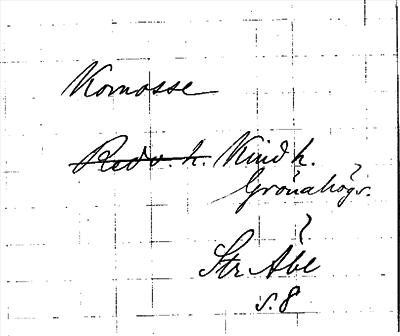 Komosse
Redv. h. Kind h.
Grönahögs.
Str Åbe
s. 8